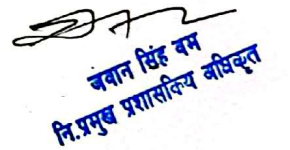 जवान सिंह बम
नि.प्रमुख प्रशासकिय अधिकृत